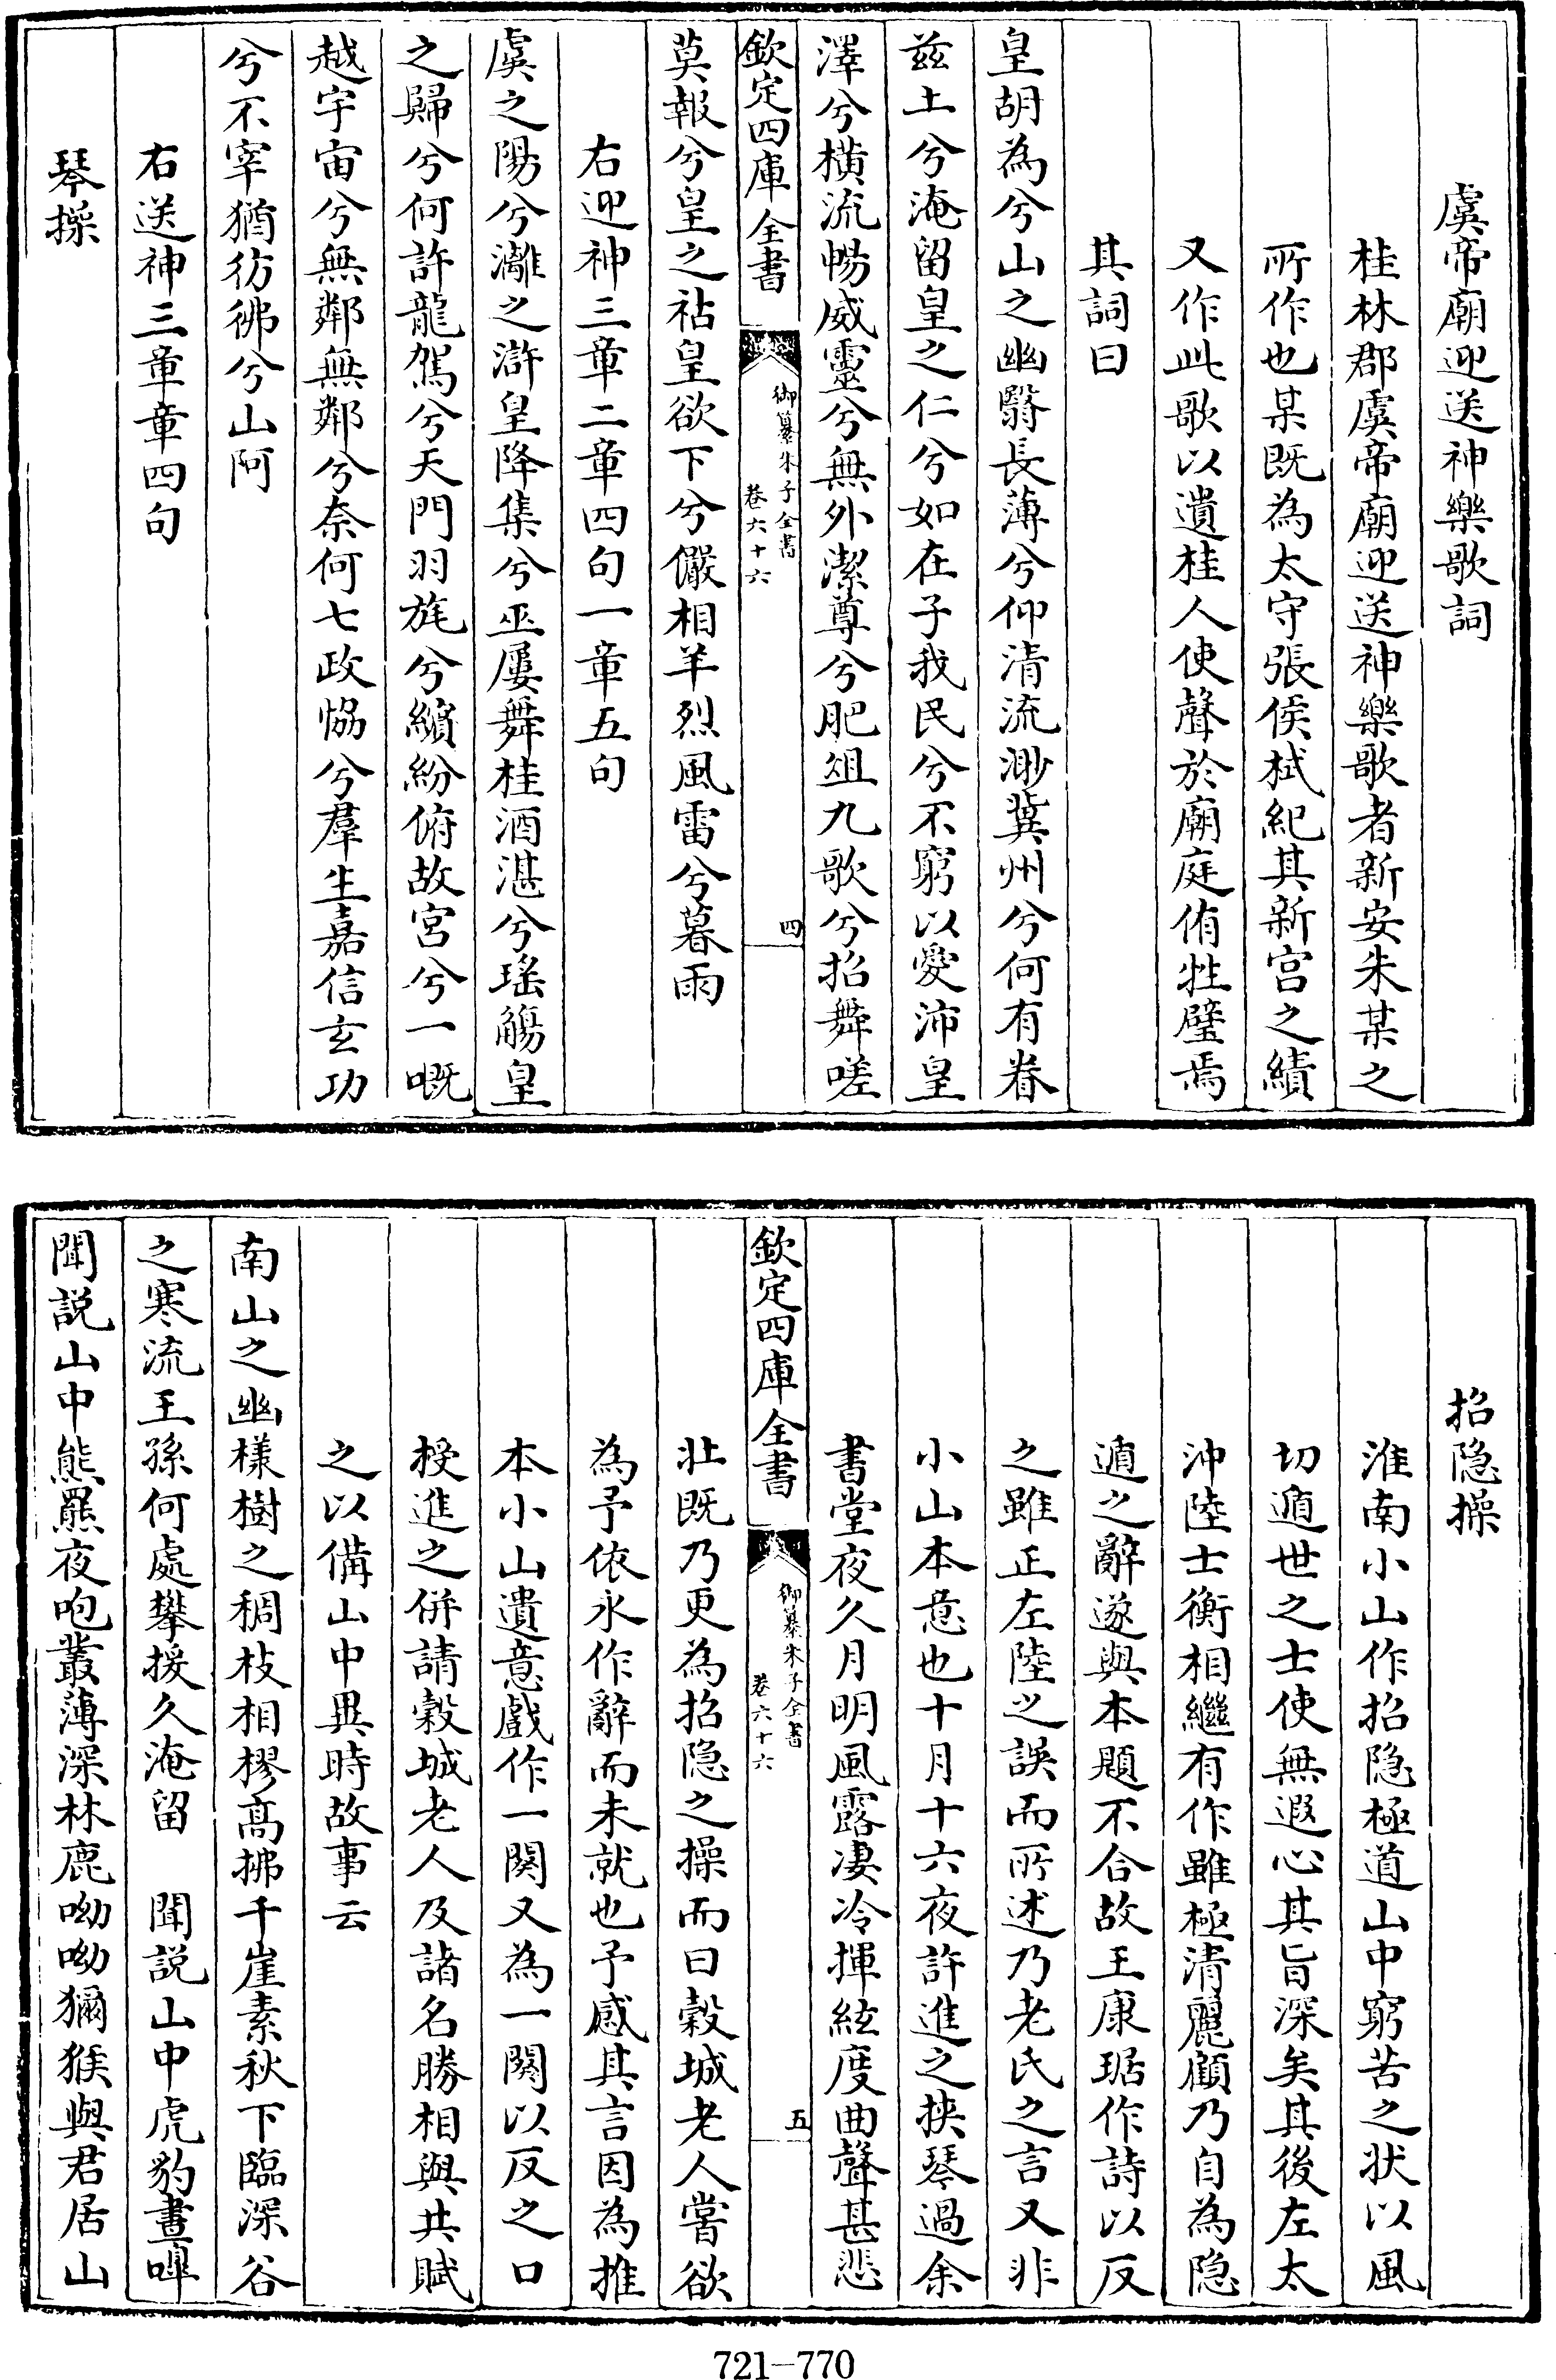 虞帝廟迎送神樂歌詞
桂林郡虞帝廟迎送神樂歌者新安朱某之
所作也某既為太守張侯栻紀其新宫之績
又作此歌以遺桂人使聲於廟庭侑牲璧焉
其詞曰
皇胡為兮山之幽翳長薄兮仰清流渺冀州兮何有眷
兹土兮淹留皇之仁兮如在子我民兮不窮以愛沛皇
澤兮横流暢威靈兮無外潔尊兮肥俎九歌兮招舞嗟
欽定四庫全書
御纂朱子全書
卷六十六
四
莫報兮皇之祜皇欲下兮儼相羊烈風雷兮暮雨
右迎神三章二章四句一章五句
虞之陽兮灕之滸皇降集兮巫屢舞桂酒湛兮瑶觴皇
之歸兮何許龍駕兮天門羽旄兮繽紛俯故宫兮一嘅
越宇宙兮無鄰無鄰兮奈何七政恊兮羣生嘉信玄功
兮不宰猶彷彿兮山阿
右送神三章章四句
琴操
招隐操
淮南小山作招隐極道山中窮苦之状以風
切遁世之士使無遐心其旨深矣其後左太
沖陸士衡相繼有作雖極清麗顧乃自為隐
遁之辭遂與本題不合故王康琚作詩以反
之雖正左陸之誤而所述乃老氏之言又非
小山本意也十月十六夜許進之挟琴過余
書堂夜久月明風露凄冷揮絃度曲聲甚悲
欽定四庫全書
御纂朱子全書
卷六十六
五
壯既乃更為招隐之操而曰穀城老人嘗欲
為予依永作辭而未就也予感其言因為推
本小山遺意戲作一闋又為一闋以反之口
授進之併請穀城老人及諸名勝相與共賦
之以備山中異時故事云
南山之幽樣樹之稠枝相樛高拂千崖素秋下臨深谷
之寒流王孫何處攀援久淹留　聞説山中虎豹晝嘷
聞説山中熊羆夜咆叢薄深林鹿呦呦獼猴與君居山
721-770